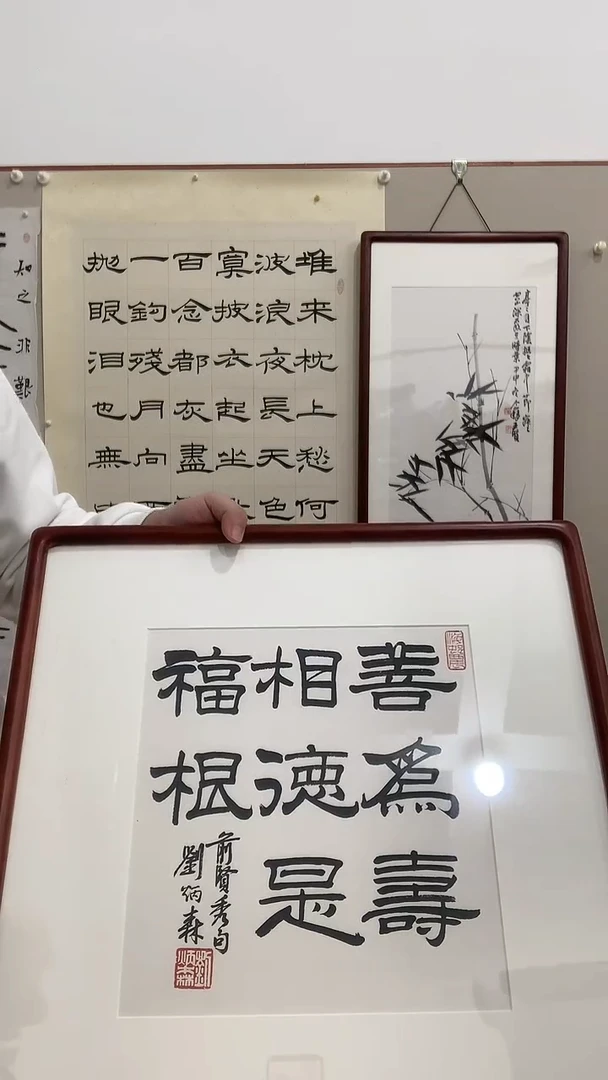 善爲壽
相德是
福根
前賢秀句
劉炳森
堆来枕上愁何
波浪夜長天色
寞披衣起坐
百念都灰盡
一鈎殘月向
抛眼泪也無
知之非艱